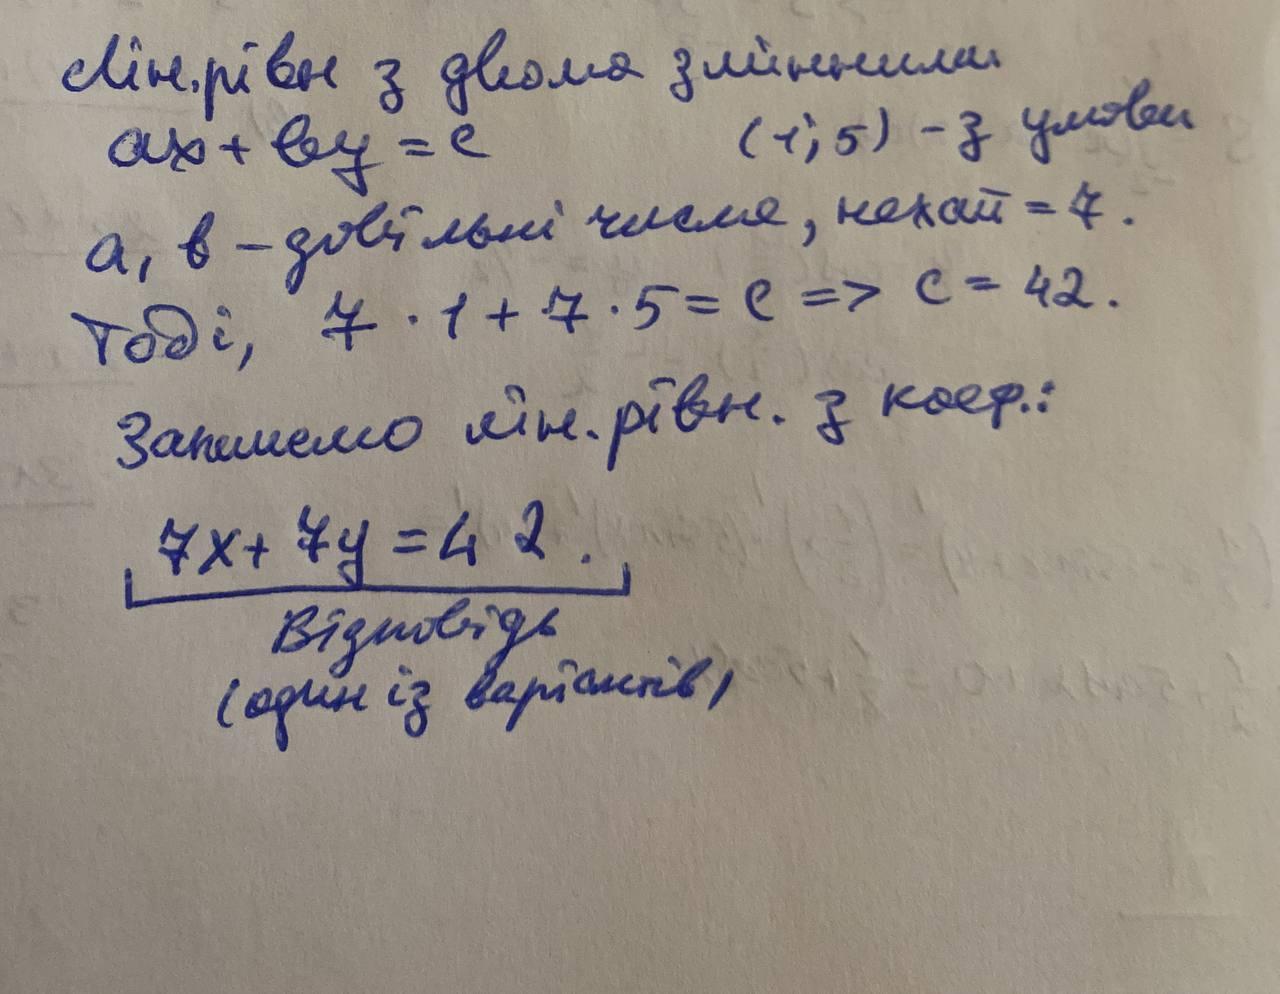 Лін.рівн з двома змінними.
ax + by = c (1; 5) - з умови
a, b - довільні числа, нехай = 7.
Тоді, 7 · 1 + 7 · 5 = c => c = 42.
Запишемо лін.рівн. з коеф.:
7x + 7y = 42.
Відповідь
(один із варіантів)